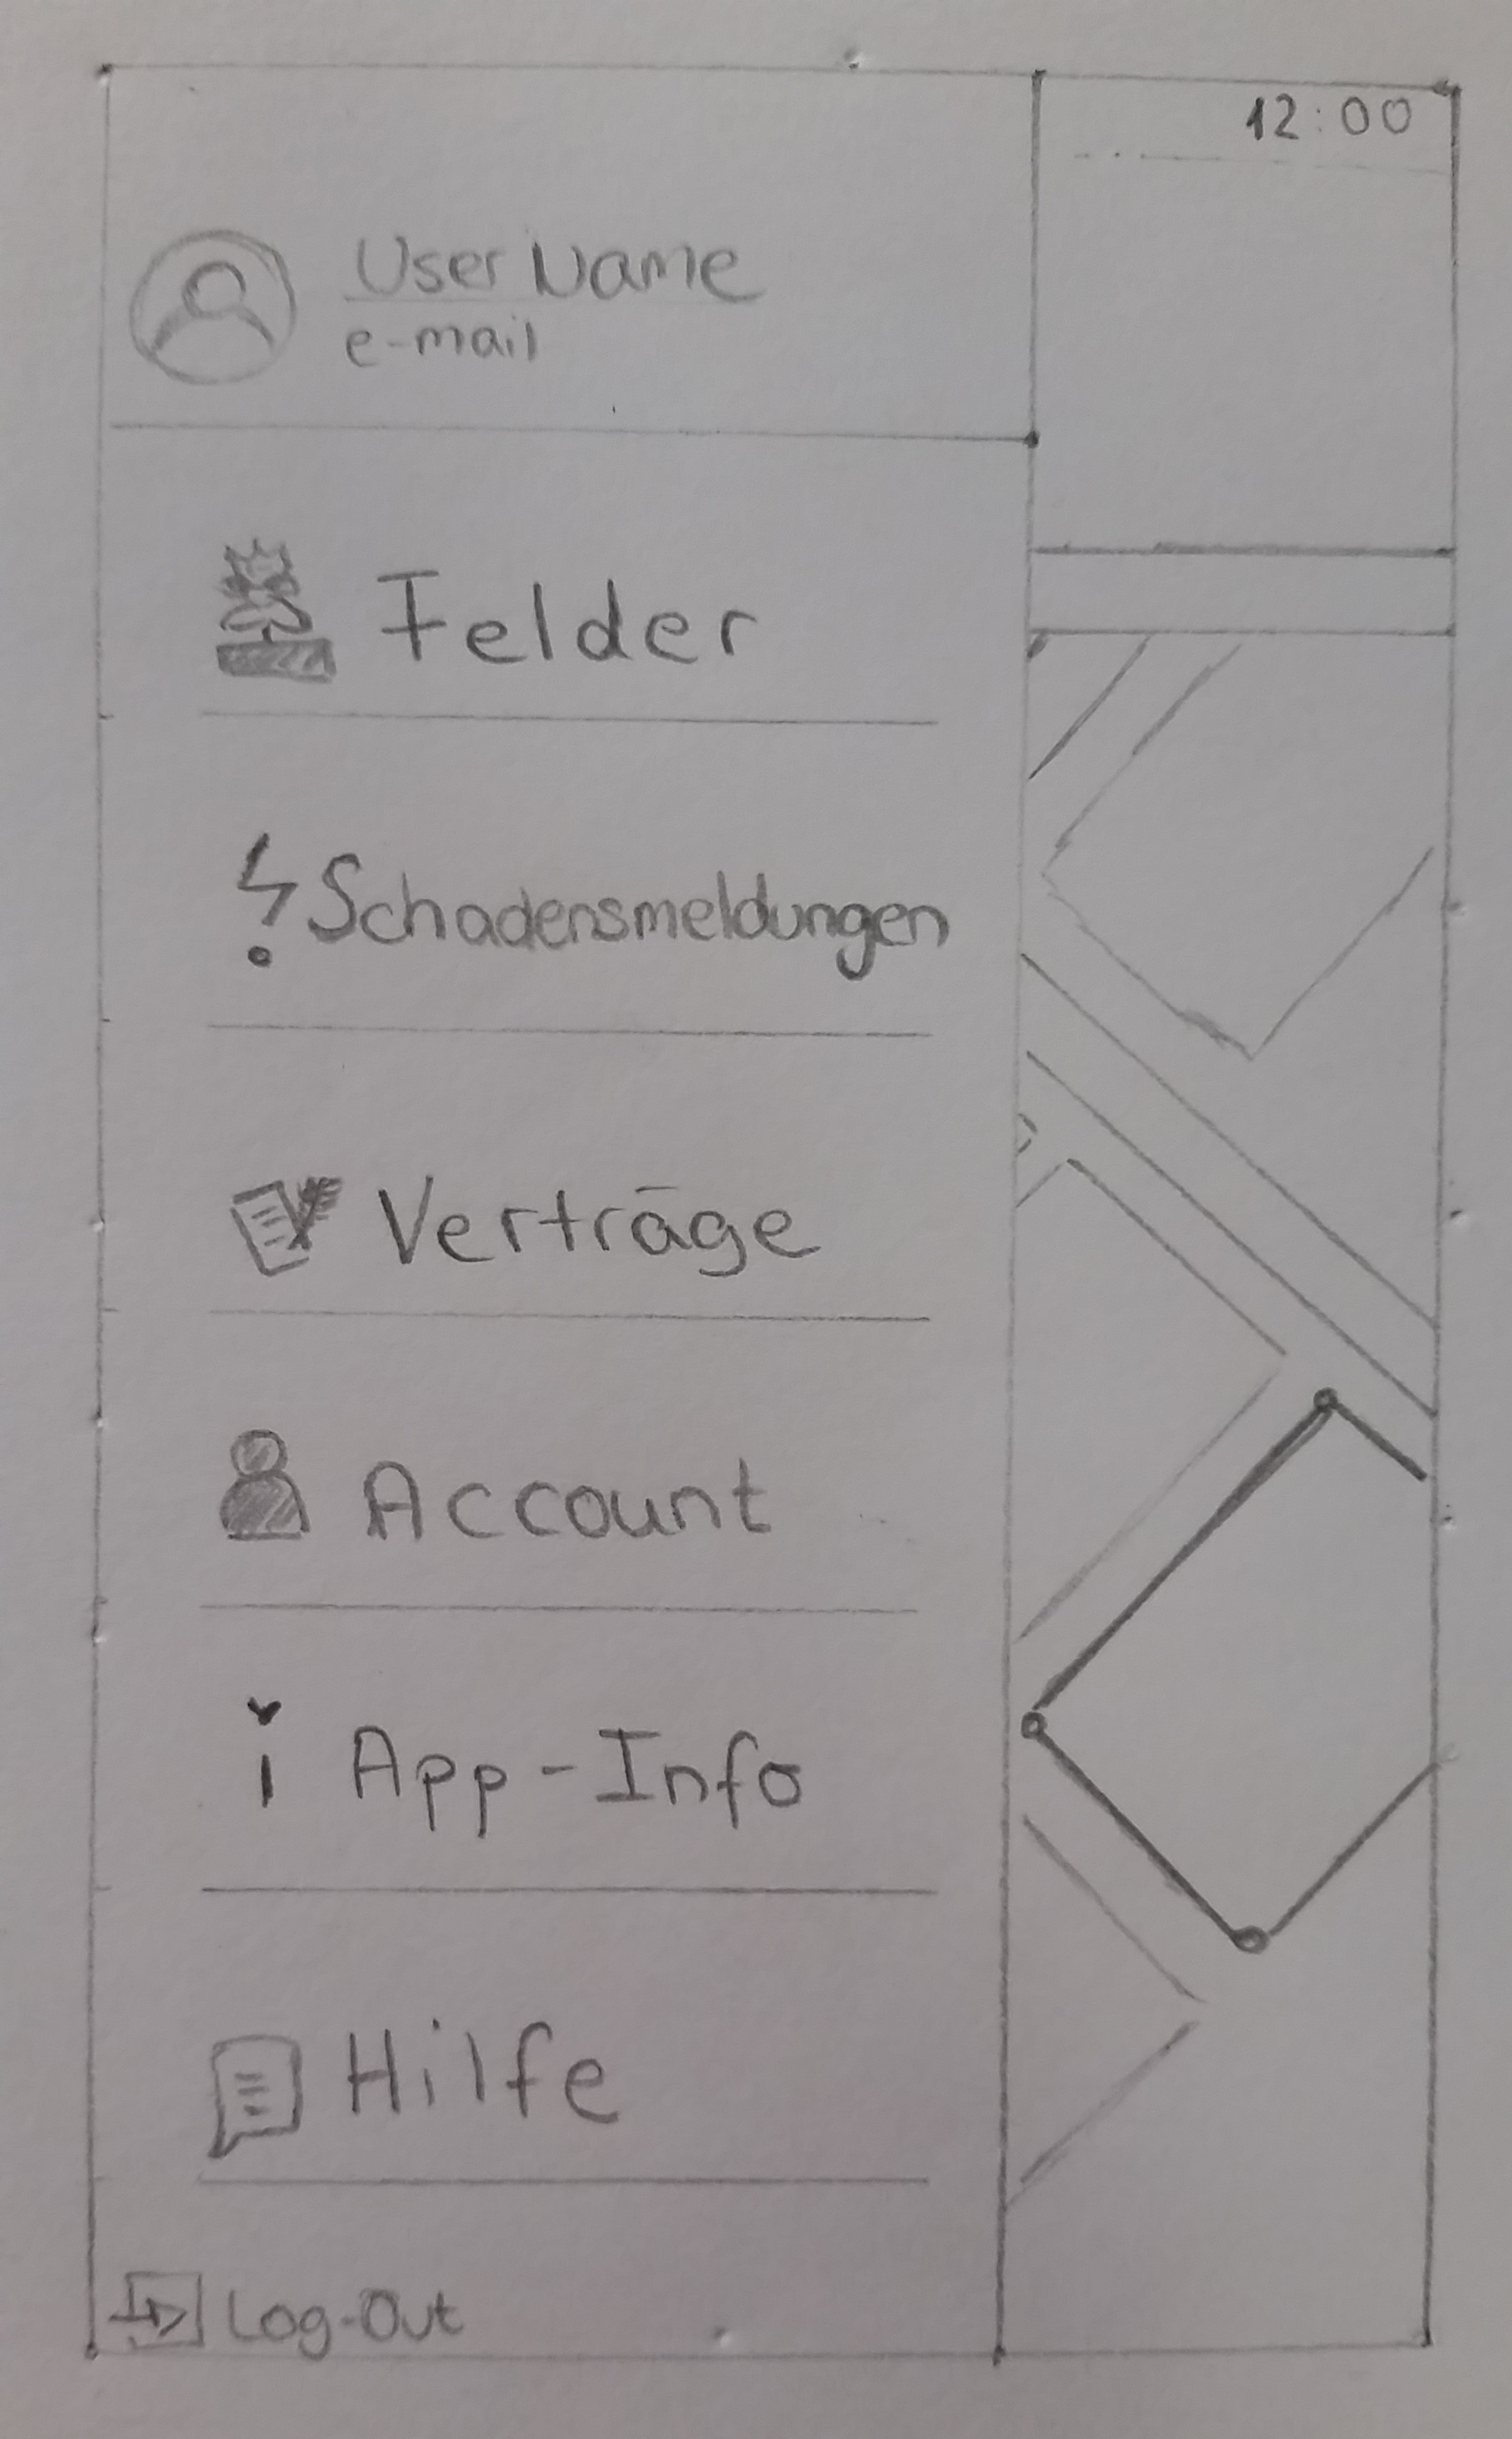 12:00
User Name
e-mail
Felder
Schadensmeldungen
Verträge
Account
App-Info
Hilfe
Log-Out